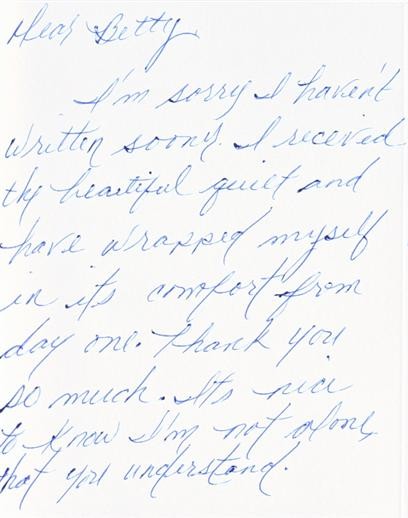 Dear Betty,
I'm sorry I haven't
written sooner. I receved
the beautiful quilt and
have wrapped myself
in its comfort from
day one. Thank you
so much. It's nice
to know I'm not alone,
that you understand.